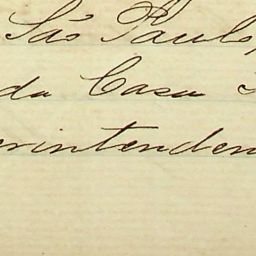 São Paulo,
da Casa
erintenden